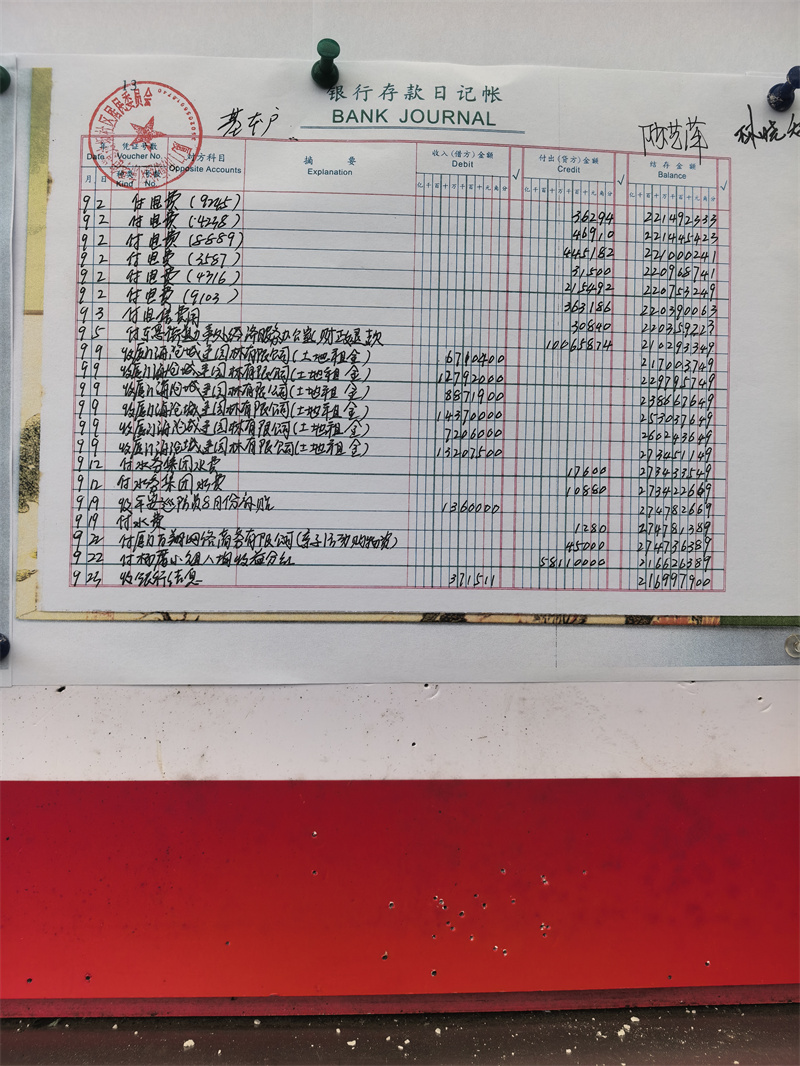 银行存款日记帐
BANK JOURNAL
基本户
社区居民委员会
年 凭证号数 对方科目 摘要 收入(借方)金额 √ 付出(贷方)金额 √ 结存金额 √
Date Voucher No. Opposite Accounts Explanation Debit Credit Balance
月 日 种类 号数 亿千百十万千百十元角分 亿千百十万千百十元角分 亿千百十万千百十元角分
Kind No.
9 2 付电费(9245) 36294 221492333
9 2 付电费(4238) 46910 221445423
9 2 付电费(8889) 445182 221000241
9 2 付电费(3587) 31500 220968741
9 2 付电费(4316) 215492 220753249
9 2 付电费(9103) 363186 220390063
9 3 付电信费用 30840 220359223
9 5 付东孚街道办事处经济服务办公室 财政退款 10065874 210293349
9 9 收厦门海沧城建园林有限公司(土地租金) 6710400 217003749
9 9 收厦门海沧城建园林有限公司(土地租金) 12792000 229795749
9 9 收厦门海沧城建园林有限公司(土地租金) 8871900 238667649
9 9 收厦门海沧城建园林有限公司(土地租金) 14370000 253037649
9 9 收厦门海沧城建园林有限公司(土地租金) 7206000 260243649
9 9 收厦门海沧城建园林有限公司(土地租金) 13207500 273451149
9 12 付水务集团水费 17600 273433549
9 12 付水务集团水费 10880 273422669
9 19 收平安巡防员8月份补贴 1360000 274782669
9 19 付水费 1280 274781389
9 22 付厦门百翔网络商务有限公司(亲子活动购物资) 45000 274736389
9 22 付杨厝小组人均收益分红 58110000 216626389
9 收银行结息 371511 216997900